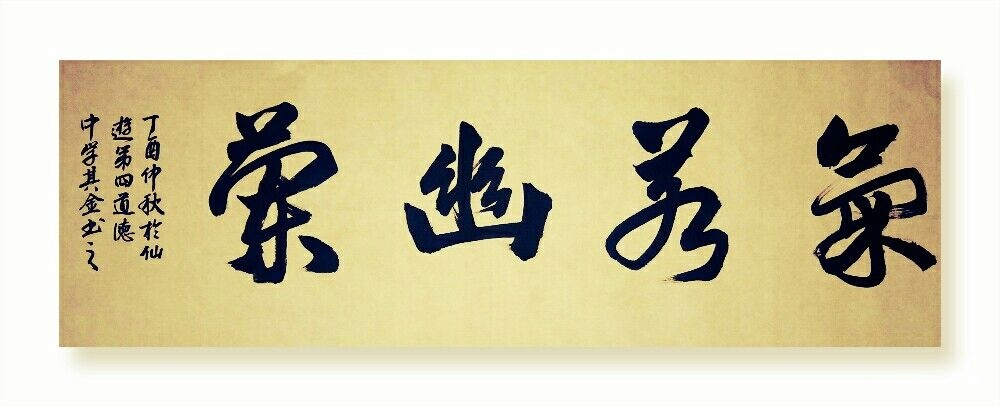 氣若幽蘭
丁酉仲秋於仙
遊第四道德
中学其金书之